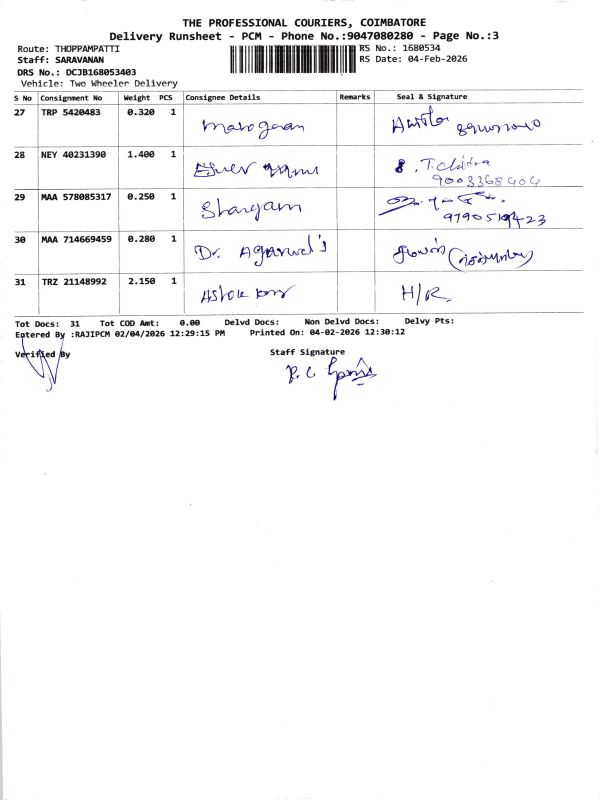 THE PROFESSIONAL COURIERS, COIMBATORE
Delivery Runsheet - PCM - Phone No.:9047080280 - Page No.:3
Route: THOPPAMPATTI RS No.: 1680534
Staff: SARAVANAN RS Date: 04-Feb-2026
DRS No.: DCJB168053403
Vehicle: Two Wheeler Delivery
S No Consignment No Weight PCS Consignee Details Remarks Seal & Signature
27 TRP 5420483 0.320 1
28 NEY 40231390 1.400 1 T. Chitra
9003368404
29 MAA 578085317 0.250 1 Shargam
30 MAA 714669459 0.280 1 Dr. Agarwal's
31 TRZ 21148992 2.150 1 Ashok H/R
Tot Docs: 31 Tot COD Amt: 0.00 Delvd Docs: Non Delvd Docs: Delvy Pts:
Entered By :RAJIPCM 02/04/2026 12:29:15 PM Printed On: 04-02-2026 12:30:12
Verified By Staff Signature